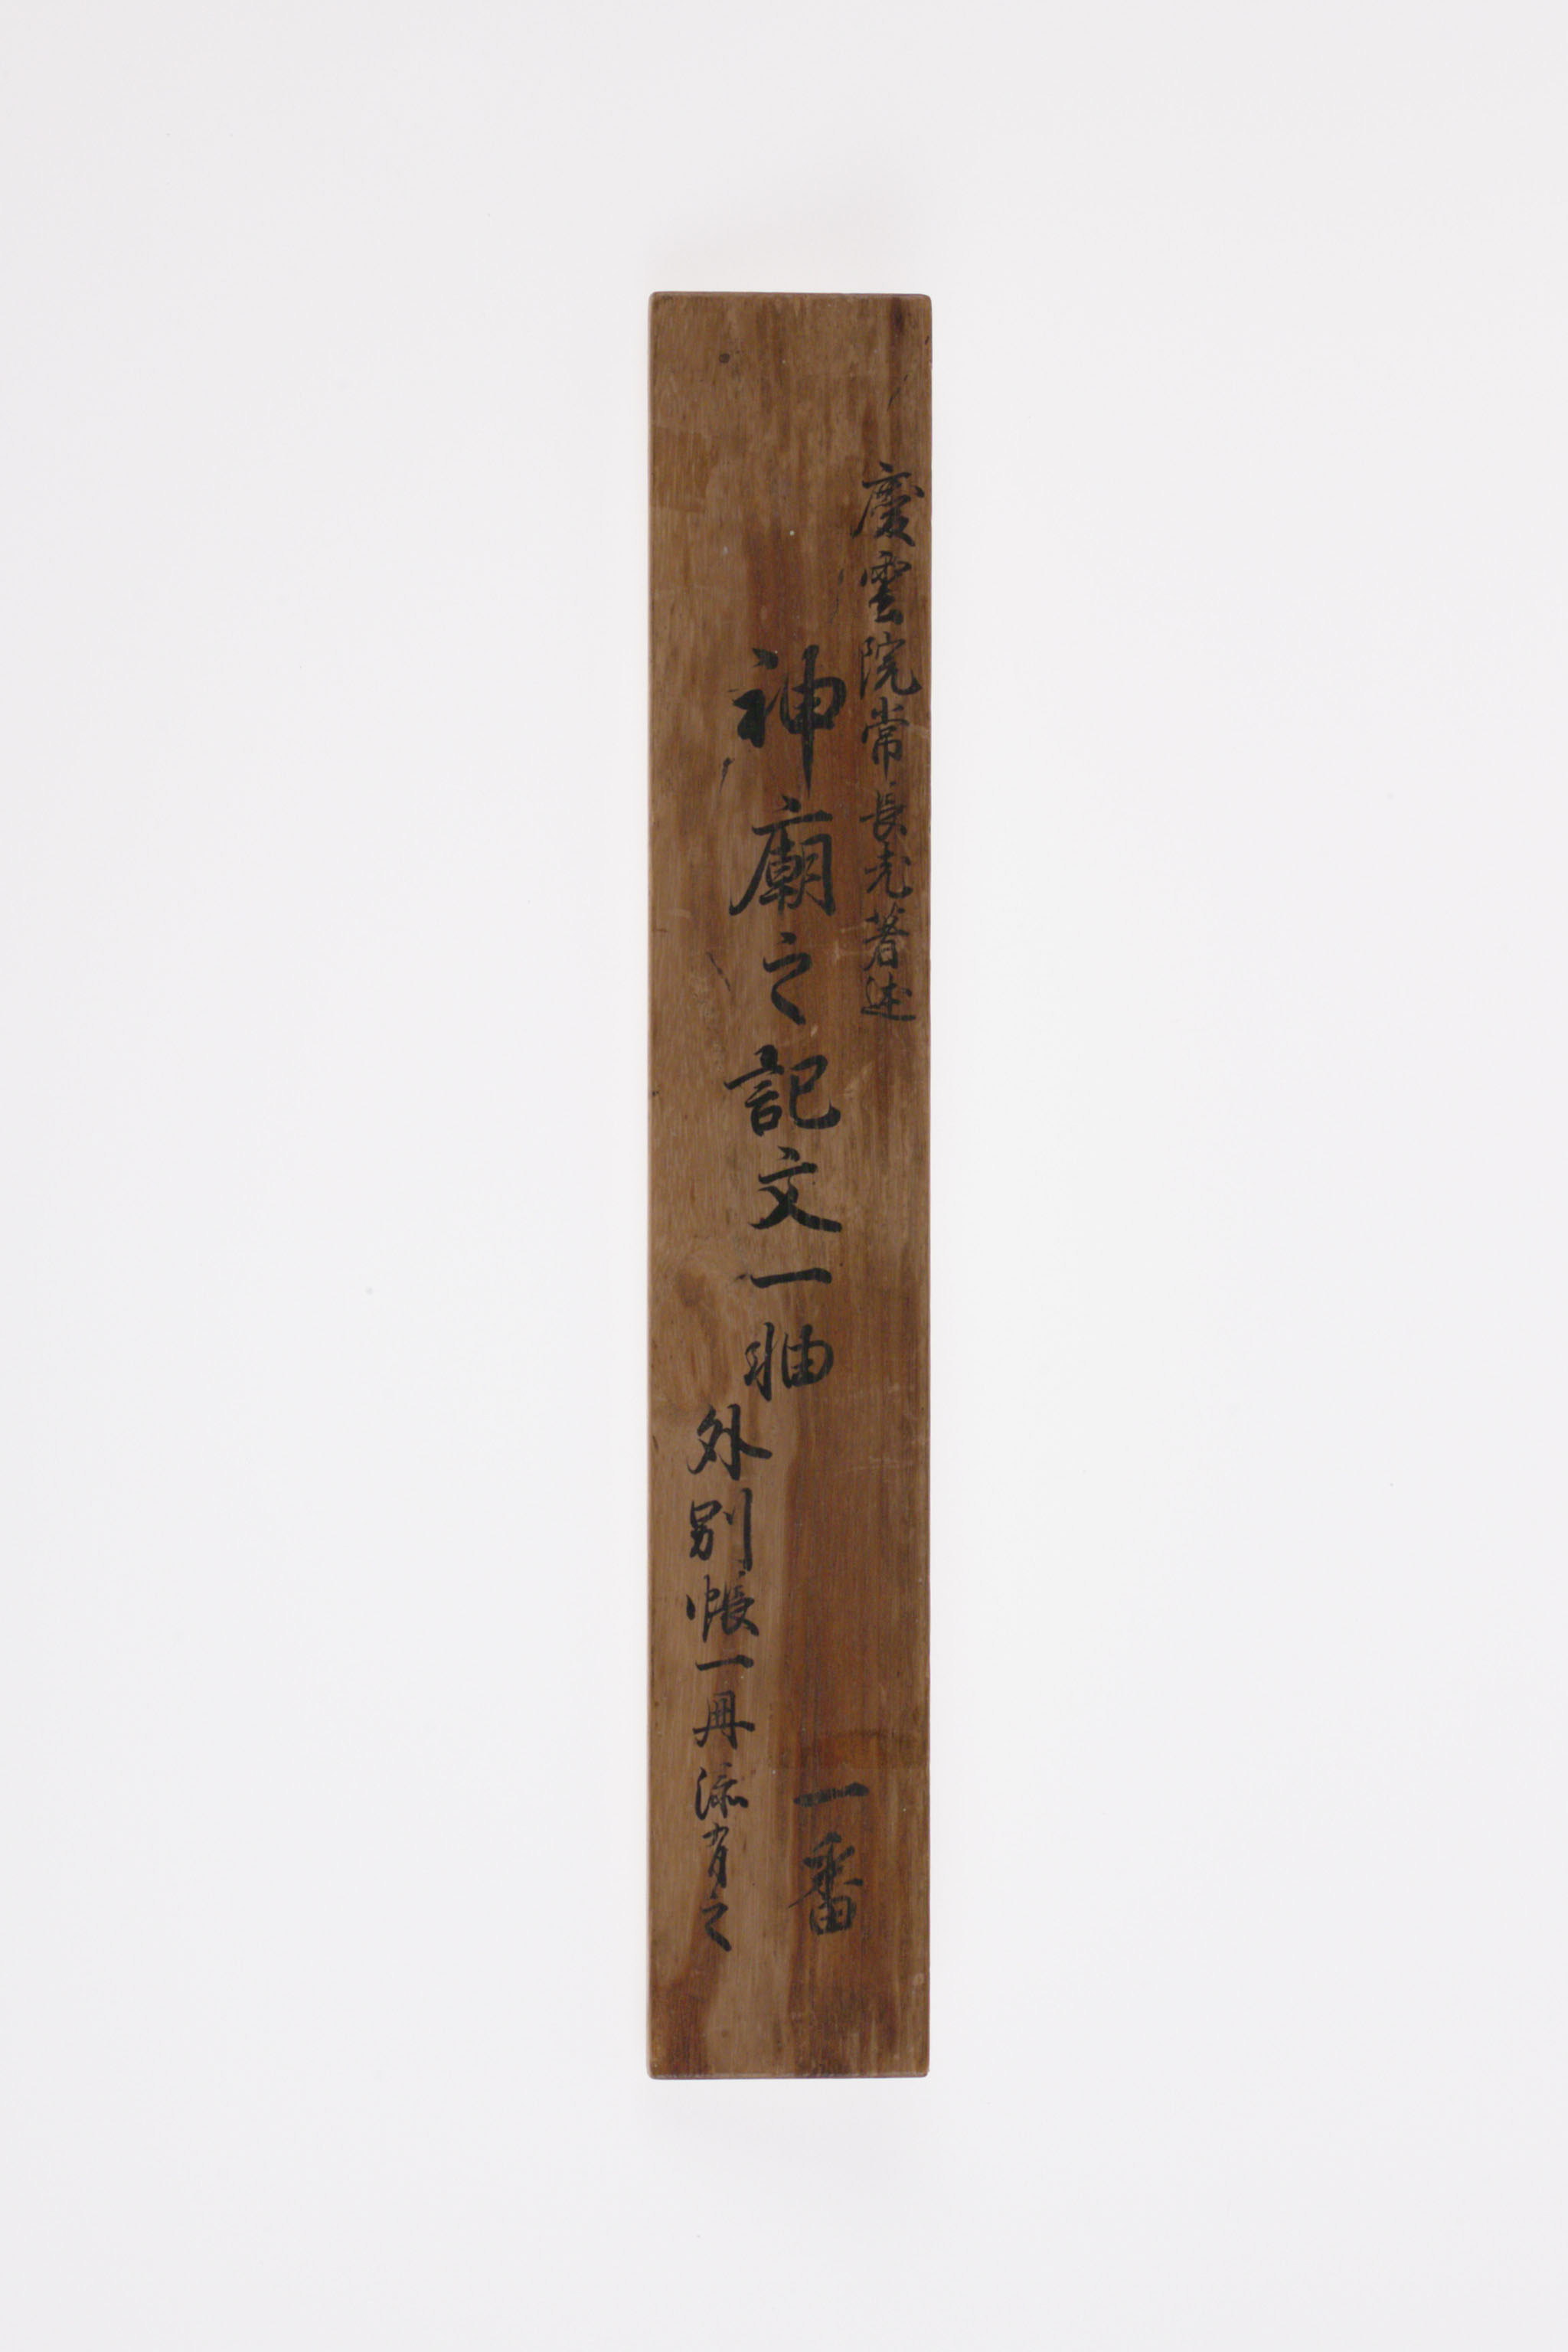 慶雲院常長老著述
神廟之記文一軸
外別帳一冊添有之
一番